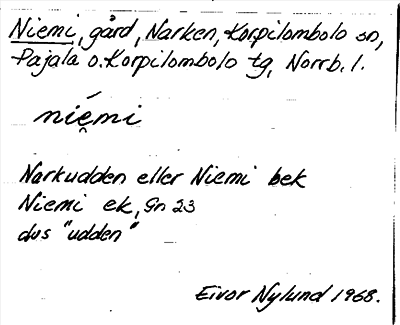 Niemi, gård, Narken, Korpilombolo sn,
Pajala o. Korpilombolo tg, Norrb. l.
nié̯mi
Narkudden eller Niemi bek
Niemi ek, Gn 23
dvs "udden"
Eivor Nylund 1968.